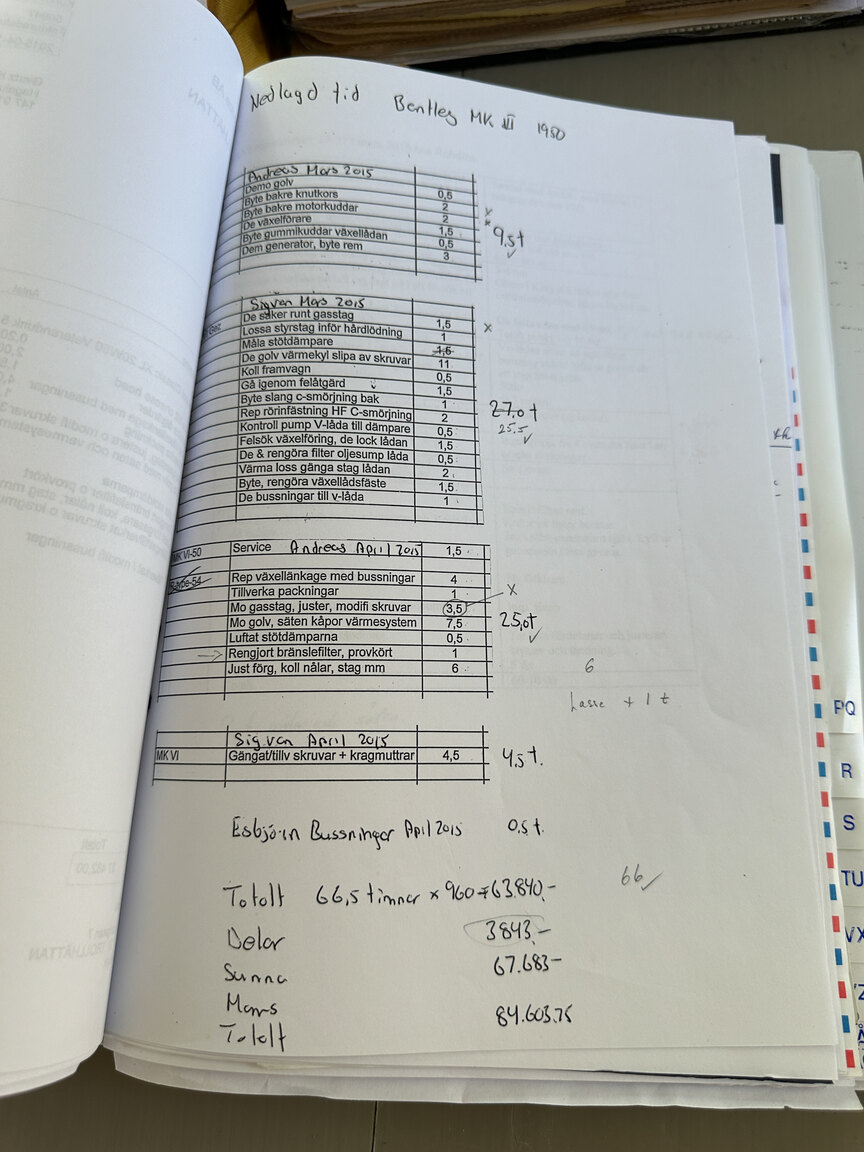 Nedlagd tid Bentley MK VI 1950
Andreas Mars 2015
Demo golv 0,5
Byte bakre knutkors 2
Byte bakre motorkuddar 2
De växelförare 1,5
Byte gummikuddar växellådan 0,5
Dem generator, byte rem 3
9,5t
Sigvan Mars 2015
De säker runt gasstag 1,5 x
Lossa styrstag inför hårdlödning 1
Måla stötdämpare 1,5
De golv värmekyl slipa av skruvar 11
Koll framvagn 0,5
Gå igenom felåtgärd 1,5
Byte slang c-smörjning bak 1
Rep rörinfästning HF C-smörjning 2
Kontroll pump V-låda till dämpare 0,5
Felsök växelföring, de lock lådan 1,5
De & rengöra filter oljesump låda 0,5
Värma loss gänga stag lådan 2
Byte, rengöra växellådsfäste 1,5
De bussningar till v-låda 1
27,0t
25,5
MK VI-50 Service Andreas April 2015 1,5
Rep växellänkage med bussningar 4
Tillverka packningar 1
Mo gasstag, juster, modifi skruvar 3,5 x
Mo golv, säten kåpor värmesystem 7,5
25,0t
Luftat stötdämparna 0,5
Rengjort bränslefilter, provkört 1
Just förg, koll nålar, stag mm 6
6
Lasse + 1 t
Sigvan April 2015
MK VI Gängat/tillv skruvar + kragmuttrar 4,5 4,5t.
Esbjörn Bussningar April 2015 0,5t.
Totalt 66,5 timmar x 960 = 63.840,-
66
Delar 3843,-
Summa 67.683-
Moms
Totalt 84.603,75
PQ
R
S
TU
VX